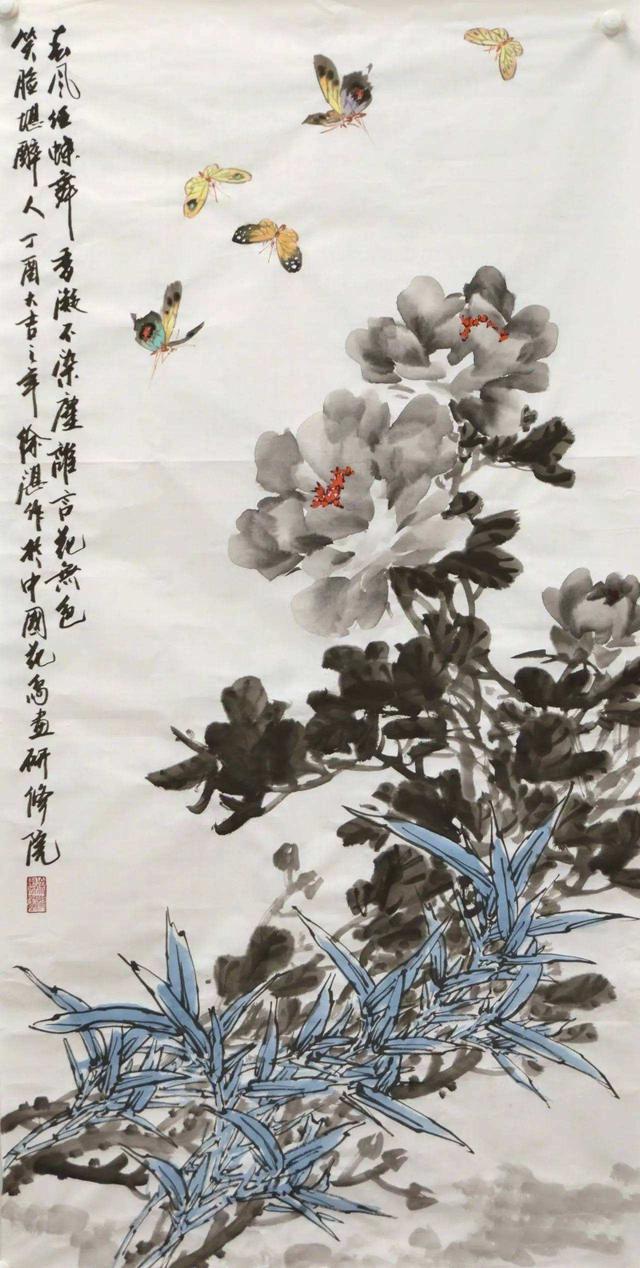 春风任蝶舞香凝不染塵雖言花無色
笑脸堪醉人丁酉大吉之年徐湛作於中國花鳥畫研修院